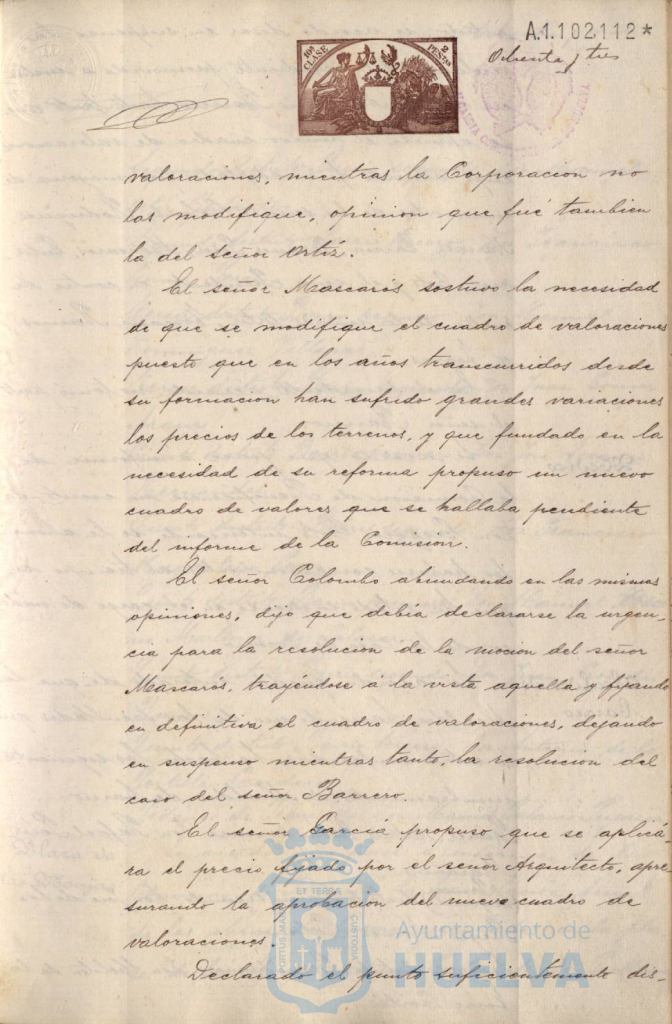 A.1.102.112*
10ª CLASE
2 PESTAS
Ochenta y tres
valoraciones, mientras la Corporacion no
las modifique, opinion que fué tambien
la del señor Ortiz.
El señor Mascarós sostuvo la necesidad
de que se modifique el cuadro de valoraciones
puesto que en los años transcurridos desde
su formacion han sufrido grandes variaciones
los precios de los terrenos, y que fundado en la
necesidad de su reforma propuso un nuevo
cuadro de valores que se hallaba pendiente
del informe de la Comision.
El señor Colombo abundando en las mismas
opiniones, dijo que debía declararse la urgen-
cia para la resolucion de la mocion del señor
Mascarós, trayéndose á la vista aquella y fijando
en definitiva el cuadro de valoraciones, dejando
en suspenso mientras tanto, la resolucion del
caso del señor Barrero.
El señor Garcia propuso que se aplicá-
ra el precio fijado por el señor Arquitecto, apre
surando la aprobacion del nuevo cuadro de
valoraciones.
Declarado el punto suficientemente dis-
PORTUS MARIS ET TERRÆ CUSTODIA
Ayuntamiento de
HUELVA